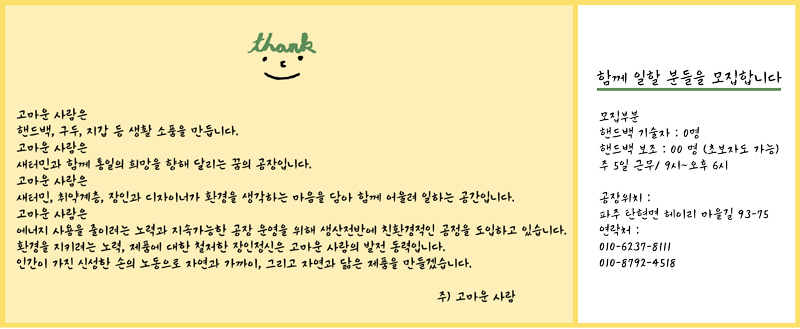 thank
고마운 사람은
핸드백, 구두, 지갑 등 생활 소품을 만듭니다.
고마운 사람은
새터민과 함께 통일의 희망을 향해 달리는 꿈의 공장입니다.
고마운 사람은
새터민, 취약계층, 장인과 디자이너가 환경을 생각하는 마음을 담아 함께 어울려 일하는 공간입니다.
고마운 사람은
에너지 사용을 줄이려는 노력과 지속가능한 공장 운영을 위해 생산전반에 친환경적인 공정을 도입하고 있습니다.
환경을 지키려는 노력, 제품에 대한 철저한 장인정신은 고마운 사람의 발전 동력입니다.
인간이 가진 신성한 손의 노동으로 자연과 가까이, 그리고 자연과 닮은 제품을 만들겠습니다.
주) 고마운 사람
함께 일할 분들을 모집합니다
모집부분
핸드백 기술자 : 0명
핸드백 보조 : 00 명 (초보자도 가능)
주 5일 근무/ 9시~오후 6시
공장위치 :
파주 탄현면 헤이리 마을길 93-75
연락처 :
010-6237-8111
010-8792-4518